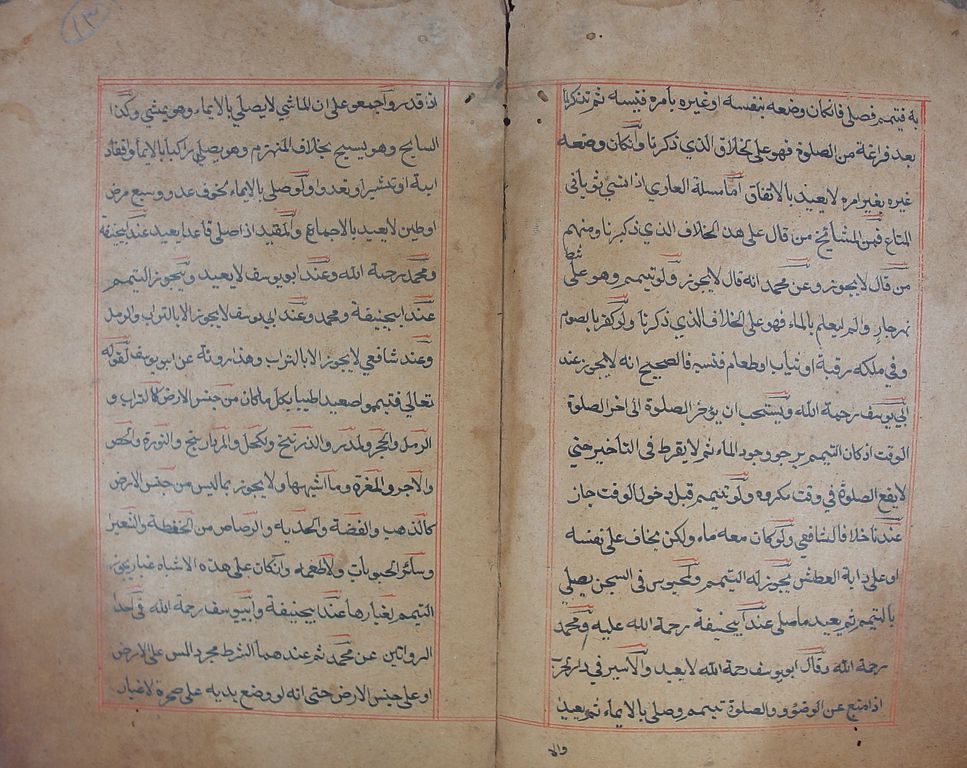 به فيتمم فصلى فانكان وضعه بنفسه او غيره بأمره فنسيه ثم تذكر ما
بعد فراغه من الصلوة فهو على الخلاق الذي ذكرنا وانكان وضعه
غيره بغير امره لا يعيد بالاتفاق اما مسئلة العاري اذا نسي ثوبا في
المتاع فمن المشائخ من قال على هذ الخلاف الذي ذكرنا ومنهم
من قال لا يجوز وعن محمد انه قال لا يجوز ولو تيمم وهو على شط
نهر جار ولم يعلم بالماء فهو على الخلاف الذي ذكرنا ولو كفر بالصوم
وفي ملكه رقبة او ثياب او طعام فنسيه فالصحيح انه لا يجوز عند
ابي يوسف رحمة الله ويستحب ان يؤخر الصلوة الى اخر الصلوة
الوقت اذ كان التيمم يرجو وجود الماء ثم لا يفرط فى التأخير حتي
لا يقع الصلوة في وقت مكروه ولو تيمم قبل دخول الوقت جاز
عندنا خلافا لشافعي ولو كان معه ماء ولكن يخاف على نفسه
او على دابة العطش يجوز له التيمم ومحبوس في السجن يصلي
بالتيمم ثم يعيد ما صلى عند ابيحنيفة رحمة الله عليه ومحمد
رحمة الله وقال ابويوسف رحمة الله لا يعيد والاسير في دار الحرب
اذا منع عن الوضوء والصلوة تيمم وصلى بالايماء ثم يعيد
والا
١٣
اذا قدر واجمعو على ان الماشي لا يصلي بالايماء وهو يمشي وكذا
السايح وهو يسبح بخلاف المنهزم وهو يصلي راكبا بالايماء
او على بالايماء لخوف عدو وسبع مرض
اوطين لا يعيد بالاجماع والمقيد اذا صلى قاعدا يعيد عند ابيحنيفة
ومحمد رحمة الله وعند ابويوسف لا يعيد ويجوز التيمم
عند ابيحنيفة ومحمد وعند ابي يوسف لا يجوز الا بالتراب والرمل
وعند شافعي لا يجوز الا بالتراب وهذا روئة عن ابويوسف لقوله
تعالى فتيمموا صعيدا طيبا بكل ما كان من جنس الارض كالتراب و
الرمل والحجر ولمدر والذرنيخ وبكحل والمردارسنج والنورة والجص
والاجر والمغرة وما اشبهها ولا يجوز بما ليس من جنس الارض
كالذهب والفضة والحديه والرصاص من الحنطة والشعير
وسائر الحبوبات ولاطعمه وانكان على هذه الاشياء غبار يجوز
التيمم بغبارها عند ابيحنيفة وابيوسف رحمة الله فى احد
الرواتين عن محمد ثم عندهما الشرط مجرد المس على الارض
او على جنس الارض حتى انه لو وضع يديه على صخرة لا غبار